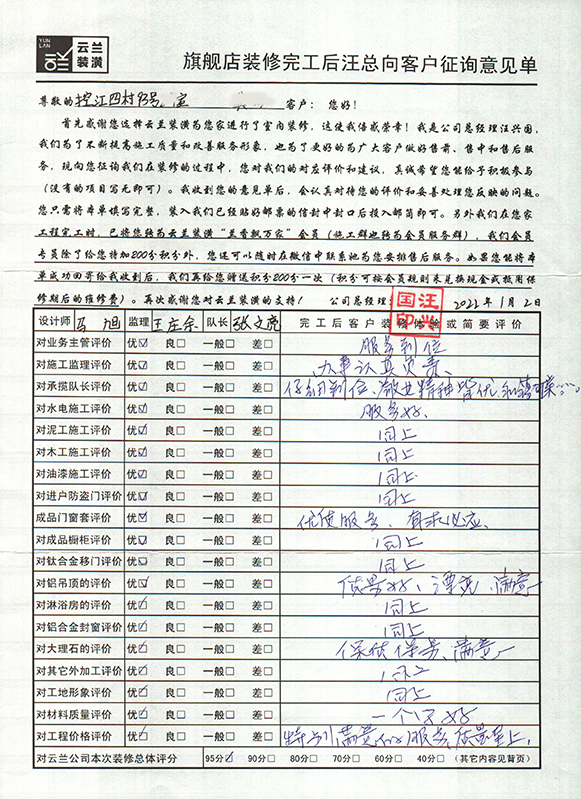 YUN LAN
云兰装潢
旗舰店装修完工后汪总向客户征询意见单
尊敬的控江四村93号 室 客户：您好！
首先感谢您选择云兰装潢为您家进行了室内装修，这使我倍感荣幸！我是公司总经理汪兴国，
我们为了不断提高施工质量和改善服务形象，也为了更好的为广大客户做好售前、售中和售后服
务，现向您征询我们在装修的过程中，您对我们的对应评价和建议，真诚希望您能给予积极参与
（没有的项目写无即可）。我收到您的意见单后，会认真对待您的评价和妥善处理您反映的问题。
您只需将本单填写完整，装入我们已经贴好邮票的信封中封口后投入邮筒即可。另外我们在您家
工程完工时，已将您转为云兰装潢“兰香飘万家”会员（施工群也转为会员服务群），我们会员
专员除了给您特加200分积分外，您还可以随时在微信中联系她为您安排售后服务。如果您能将本
单成功回寄给我收到后，我们再给您赠送积分200分一次（积分可按会员规则来兑换现金或抵用保
修期后的维修费）。再次感谢您对云兰装潢的支持！ 公司总经理： 2022年1月2日
国汪印兴
设计师 马旭 监理 王庄余 队长 张文亮 完工后客户装修体验或简要评价
对业务主管评价 优☑ 良□ 一般□ 差□ 服务到位
对施工监理评价 优☑ 良□ 一般□ 差□ 办事认真负责、
对承揽队长评价 优☑ 良□ 一般□ 差□ 仔细到位、敬业精神皆优
对水电施工评价 优☑ 良□ 一般□ 差□ 服务好、
对泥工施工评价 优☑ 良□ 一般□ 差□ 同上
对木工施工评价 优☑ 良□ 一般□ 差□ 同上
对油漆施工评价 优☑ 良□ 一般□ 差□ 同上
对进户防盗门评价 优☑ 良□ 一般□ 差□ 同上
成品门窗套评价 优☑ 良□ 一般□ 差□ 优质服务、有求必应、
对成品橱柜评价 优☑ 良□ 一般□ 差□ 同上
对钛合金移门评价 优☑ 良□ 一般□ 差□ 同上
对铝吊顶的评价 优☑ 良□ 一般□ 差□ 质量好、漂亮、满意
对淋浴房的评价 优☑ 良□ 一般□ 差□ 同上
对铝合金封窗评价 优☑ 良□ 一般□ 差□ 同上
对大理石的评价 优☑ 良□ 一般□ 差□ 保质保量、满意
对其它外加工评价 优☑ 良□ 一般□ 差□ 同上
对工地形象评价 优☑ 良□ 一般□ 差□ 同上
对材料质量评价 优☑ 良□ 一般□ 差□ 一个字好
对工程价格评价 优☑ 良□ 一般□ 差□ 特别满意 服务、质量至上、
对云兰公司本次装修总体评分 95分☑ 90分□ 80分□ 70分□ 60分□ 40分□ （其它内容见背页）